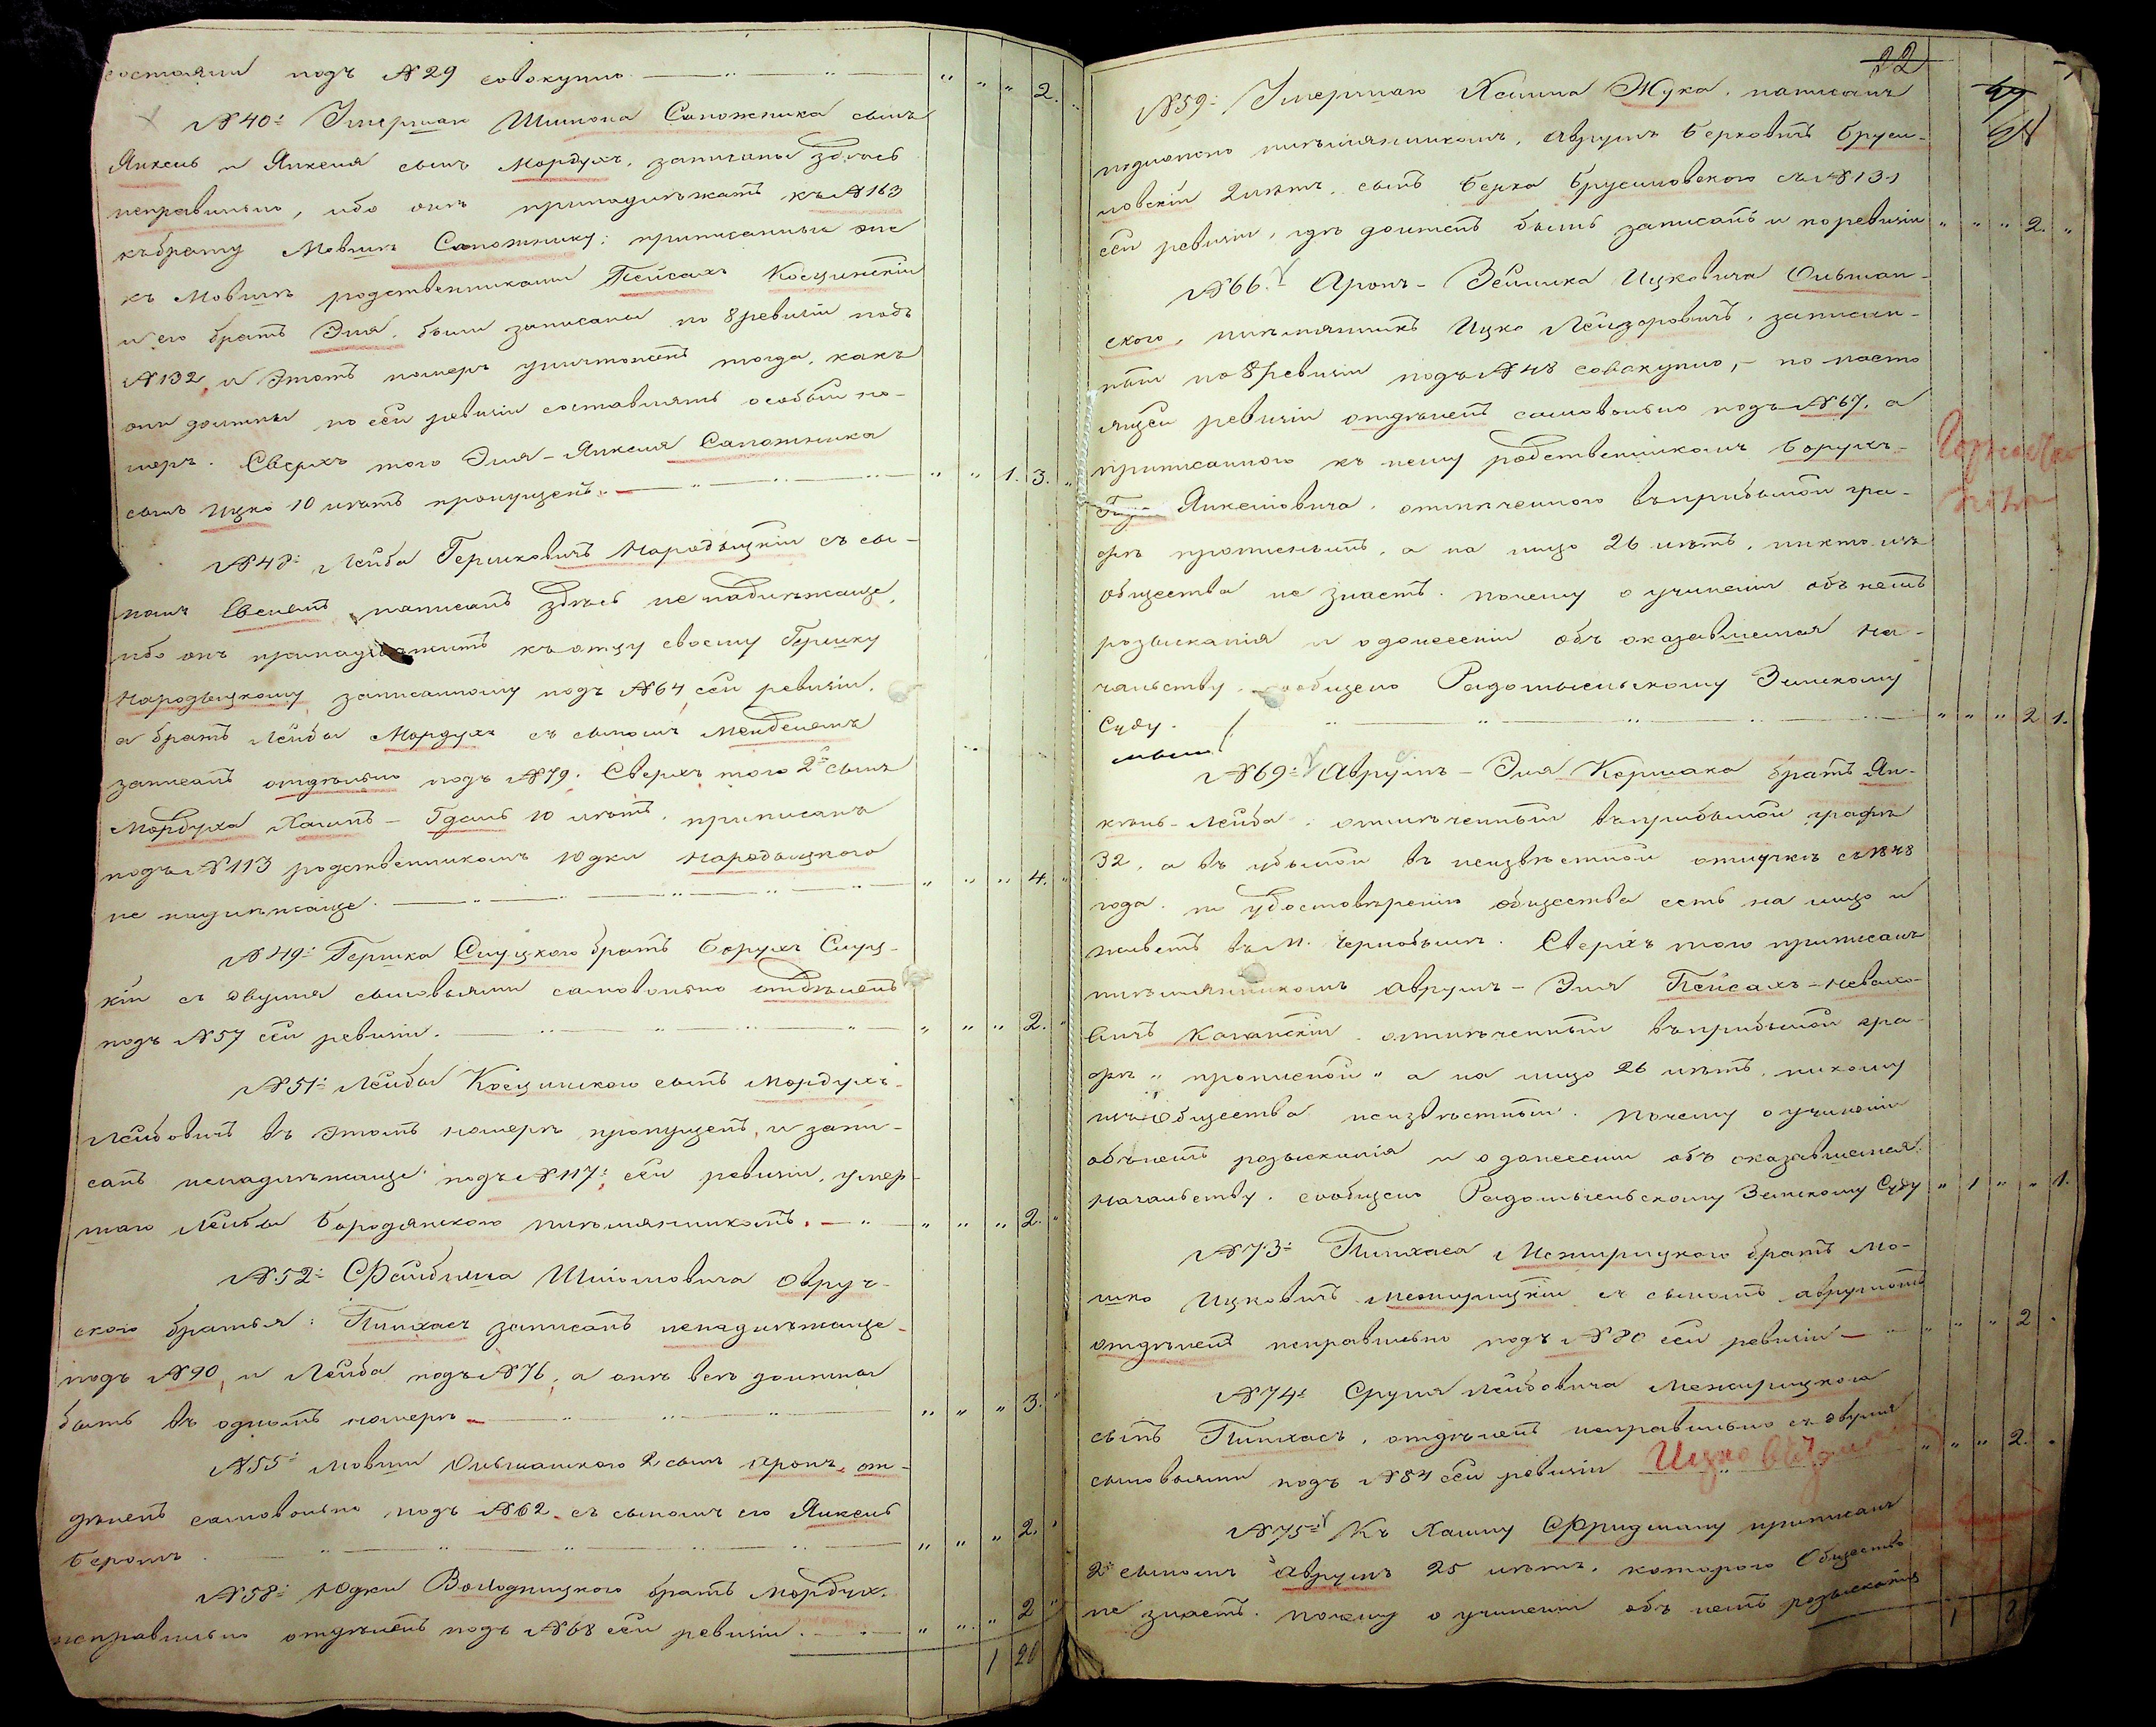 состояли подъ №29 совокупно. — " — " — " " " 2. "
№40: Умершаго Шимона Сапожника сынъ
Янкель и Янкеля сынъ Мордухъ, записаны здѣсь
неправильно, ибо онѣ принадлежатъ къ №163
къ брату Мовшѣ Сапожнику; приписанные же
къ Мовшѣ родственниками Пейсахъ Косцинскій
и его братъ Эля, были записаны по 8 ревизіи подъ
№132, и этотъ номеръ уничтоженъ тогда, какъ
они должны по сей ревизіи составлять особый но-
меръ. Сверхъ того Эля-Янкеля Сапожника
сынъ Ицко 10 лѣтъ пропущенъ. — " — " — " " 1. 3. "
№48: Лейба Гершковичъ Народыцкій съ сы-
номъ написанъ здѣсь не надлежаще,
ибо онъ принадлежитъ къ отцу своему Гершку
Народыцкому записанному подъ №64 сей ревизіи,
а братъ Лейбы Мордухъ съ сыномъ Менделемъ
записанъ отдѣльно подъ №79. Сверхъ того 2й сынъ
Мордуха Хаимъ - Гдаль 10 лѣтъ, приписанъ
подъ №113 родственникомъ Юдки Народыцкого
не надлежаще. — " — " — " " " 4. "
№49: Гершка Слуцкого братъ Борухъ Слуц-
кій съ двумя сыновьями самовольно отдѣленъ
подъ №57 сей ревизіи. — " — " — " " " 2. "
№51: Лейбы Косцинского сынъ Мордухъ-
Лейбовичъ въ этомъ номерѣ пропущенъ, и запи-
санъ ненадлежаще подъ №117: сей ревизіи, умер-
шаго Лейбы Бородянского племянникомъ. — " — " " " 2. "
№52: Файбиша Шліомовича Овруч-
ского братья: Пинхасъ записанъ ненадлежаще
подъ №90, и Лейба подъ №76, а онѣ всѣ должны
быть въ одномъ номерѣ — " — " — " " " 3. "
№55: Мовши Ольшанского 2 сынъ Аронъ, от-
дѣленъ самовольно подъ №62. съ сыномъ его Янкель
Беромъ. — " — " — " " " 2. "
№58: Юдки Володницкого братъ Мордух.
неправильно отдѣленъ подъ №68 сей ревизіи. — " " " 2 "
1 20
22
№59: Умершаго Хаима Жука, написанъ
подложно племянникомъ, Аврумъ Берковичъ Бруси-
ловскій 2 лѣтъ, сынъ Берка Брусиловского съ №131
сей ревизіи, гдѣ долженъ быть записанъ и по ревизіи " " " 2. "
№66. Аронъ-Зейлика Ицковича Ольшан-
ского, племянникъ Ицко Лейзоровичъ, записан-
ный по 8 ревизіи подъ №48 совокупно, - по насто
ящей ревизіи отдѣленъ самовольно подъ №67, а
приписанного къ нему родственникомъ Борухъ-
Янкелiовича, отмѣченного въ прибылой гра-
фѣ прописнымъ, а на лицо 26 лѣтъ, никто изъ
общества не знаетъ. почему о учиненіи объ немъ
розысканія и о донесеніи объ оказавшемся На-
чальству, сообщено Радомысльскому Земскому
Суду. — " — " — " — " " " 2 1.
№69: Аврумъ-Эля Коршака братъ Ян-
кель-Лейба, отмѣченный въ прибылой графѣ
32, а въ убылой въ неизвѣстной отлучкѣ съ 1848
года. по удостовѣренію общества есть на лицо и
живетъ въ М. Чернобылѣ. Сверхъ того приписанъ
племянникомъ Аврумъ-Эля Пейсахъ-
отмѣченный въ прибылой гра-
фѣ "прописной" а на лицо 26 лѣтъ, никому
изъ Общества неизвѣстный. почему о учиненіи
объ немъ розысканія и о донесеніи объ оказавшемся
Начальству, сообщено Радомысльскому Земскому Суду " 1 " " 1.
№73: Пинхаса Межирицкого братъ Мо-
шко Ицковичъ Межирицкій съ сыномъ Аврумомъ
отдѣленъ неправильно подъ №80 сей ревизіи — " " " 2 "
№74: Сруля Лейбовича Межирицкого
сынъ Пинхасъ, отдѣленъ неправильно съ двумя
сыновьями подъ №84 сей ревизіи Ицко " " " 2. "
№75: Къ Хаиму Фридману приписанъ
2й сыномъ Аврумъ 25 лѣтъ, которого Общество
не знаетъ. почему о учиненіи объ немъ розысканія
1